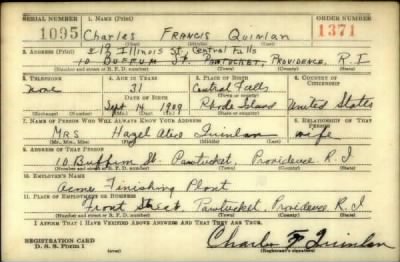 SERIAL NUMBER 1. NAME (Print) ORDER NUMBER
1095 Charles Francis Quinlan 1371
(First) (Middle) (Last)
212 Illinois St, Central Falls
2. ADDRESS (Print)
10 Buffum St. Pawtucket, Providence, R.I
(Number and street or R. F. D. number) (Town) (County) (State)
3. TELEPHONE 4. AGE IN YEARS 5. PLACE OF BIRTH 6. COUNTRY OF CITIZENSHIP
none 31 Central Falls
DATE OF BIRTH (Town or county)
Sept 14 1909 Rhode Island United States
(Mo.) (Day) (Yr.) (State or country)
7. NAME OF PERSON WHO WILL ALWAYS KNOW YOUR ADDRESS 8. RELATIONSHIP OF THAT PERSON
Mrs Hazel Quinlan wife
(Mr., Mrs., Miss) (First) (Middle) (Last)
9. ADDRESS OF THAT PERSON
10 Buffum St. Pawtucket, Providence R.I
(Number and street or R. F. D. number) (Town) (County) (State)
10. EMPLOYER'S NAME
Acme Finishing Plant
11. PLACE OF EMPLOYMENT OR BUSINESS
Front Street, Pawtucket, Providence, R.I
(Number and street or R. F. D. number) (Town) (County) (State)
I AFFIRM THAT I HAVE VERIFIED ABOVE ANSWERS AND THAT THEY ARE TRUE.
REGISTRATION CARD
D. S. S. Form 1 Charles F. Quinlan
(over) (Registrant's signature)